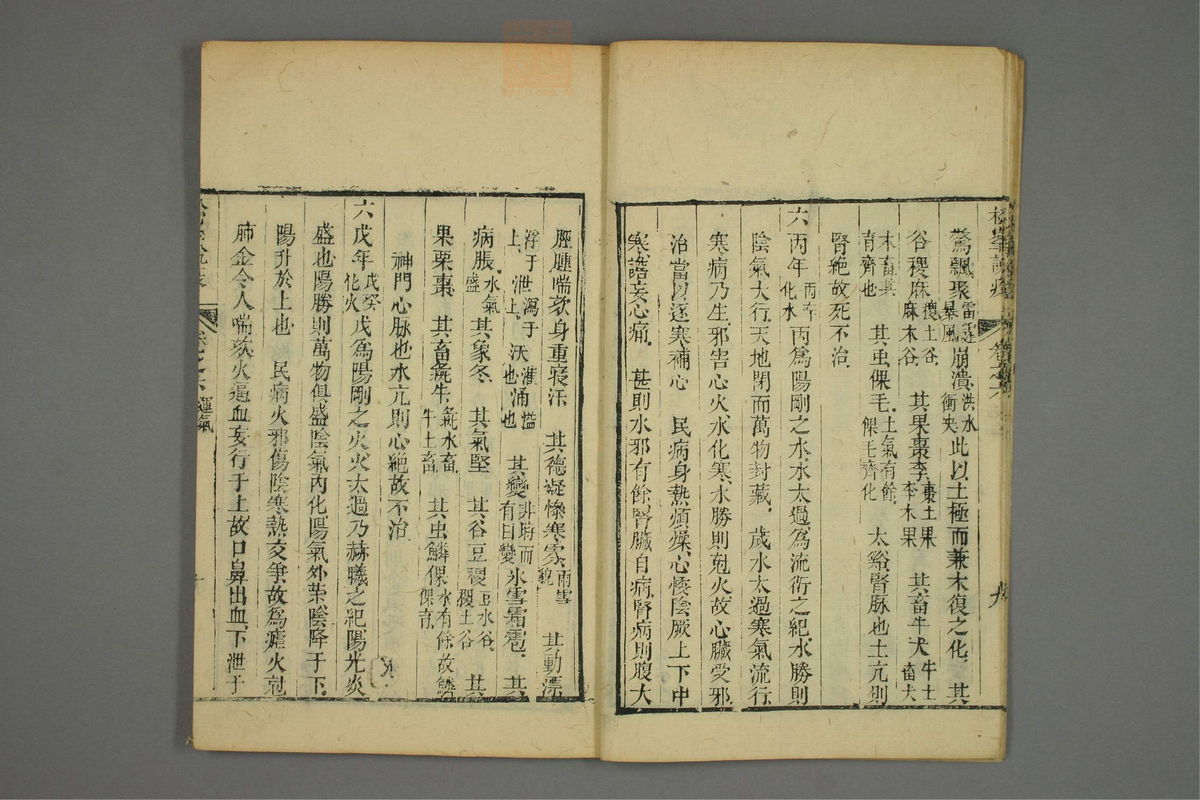 驚飄聚雷霆暴風崩潰洪水衝突此以土極而兼木復之化其
谷稷麻稷土谷麻木谷其果棗李棗土果李木果其畜牛犬牛土畜犬
木畜其育齊也其虫倮毛土氣有餘倮毛齊化太谿腎脉也土亢則
腎絶故死不治
六丙年丙辛化水丙爲陽剛之水水太過爲流衍之紀水勝則
陰氣大行天地閉而萬物封藏歲水太過寒氣流行
寒病乃生邪害心火水化寒水勝則尅火故心臟受邪
治當以逐寒補心民病身熱煩燥心悸陰厥上下中
寒譫妄心痛甚則水邪有餘腎臟自病腎病則腹大
脛腫喘欬身重寢汗其德凝慘寒雰雨雪貌其動漂
浮于上泄瀉于上沃灌涌也溢也其變非時而有曰變氷雪霜雹其
病脹水氣盛其象冬其氣堅其谷豆稷豆水谷稷土谷其
果栗棗其畜彘牛彘水畜牛土畜其虫鱗倮水有餘故鱗倮育
神門心脉也水亢則心絶故不治
六戊年戊癸化火戊爲陽剛之火火太過乃赫曦之紀陽光炎
盛也陽勝則萬物俱盛陰氣內化陽氣外荣陰降于下
陽升於上也民病火邪傷陰寒熱交争故爲瘧火尅
肺金令人喘欬火逼血妄行于上故口鼻出血下泄于
卷之六 運氣